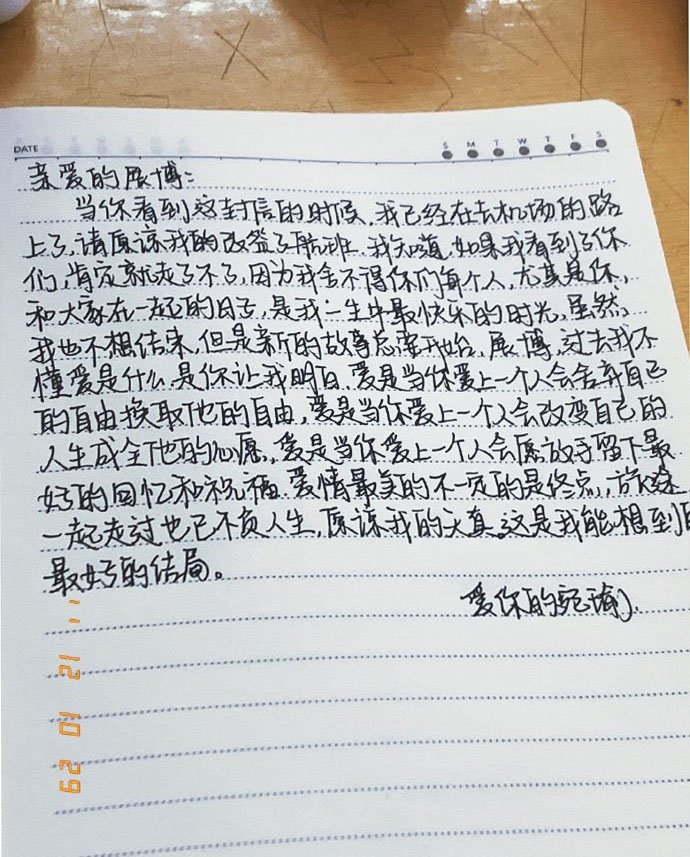 DATE
S M T W T F S
亲爱的展博:
当你看到这封信的时候,我已经在去机场的路
上了,请原谅我的改签了航班,我知道,如果我看到了你
们,肯定就走了不了,因为我舍不得你们每个人,尤其是你,
和大家在一起的日子,是我一生中最快乐的时光,虽然,
我也不想结束,但是新的故事总要开始,展博,过去我不
懂爱是什么,是你让我明白,爱是当你爱上一个人会舍弃自己
的自由换取他的自由,爱是当你爱上一个人会改变自己的
人生成全他的心愿,爱是当你爱上一个人会愿放手留下最
好的回忆和祝福.爱情最美的不一定的是终点,旅途
一起走过也已不负人生,原谅我的天真,这是我能想到
最好的结局。
爱你的宛瑜.
11 12 10 29